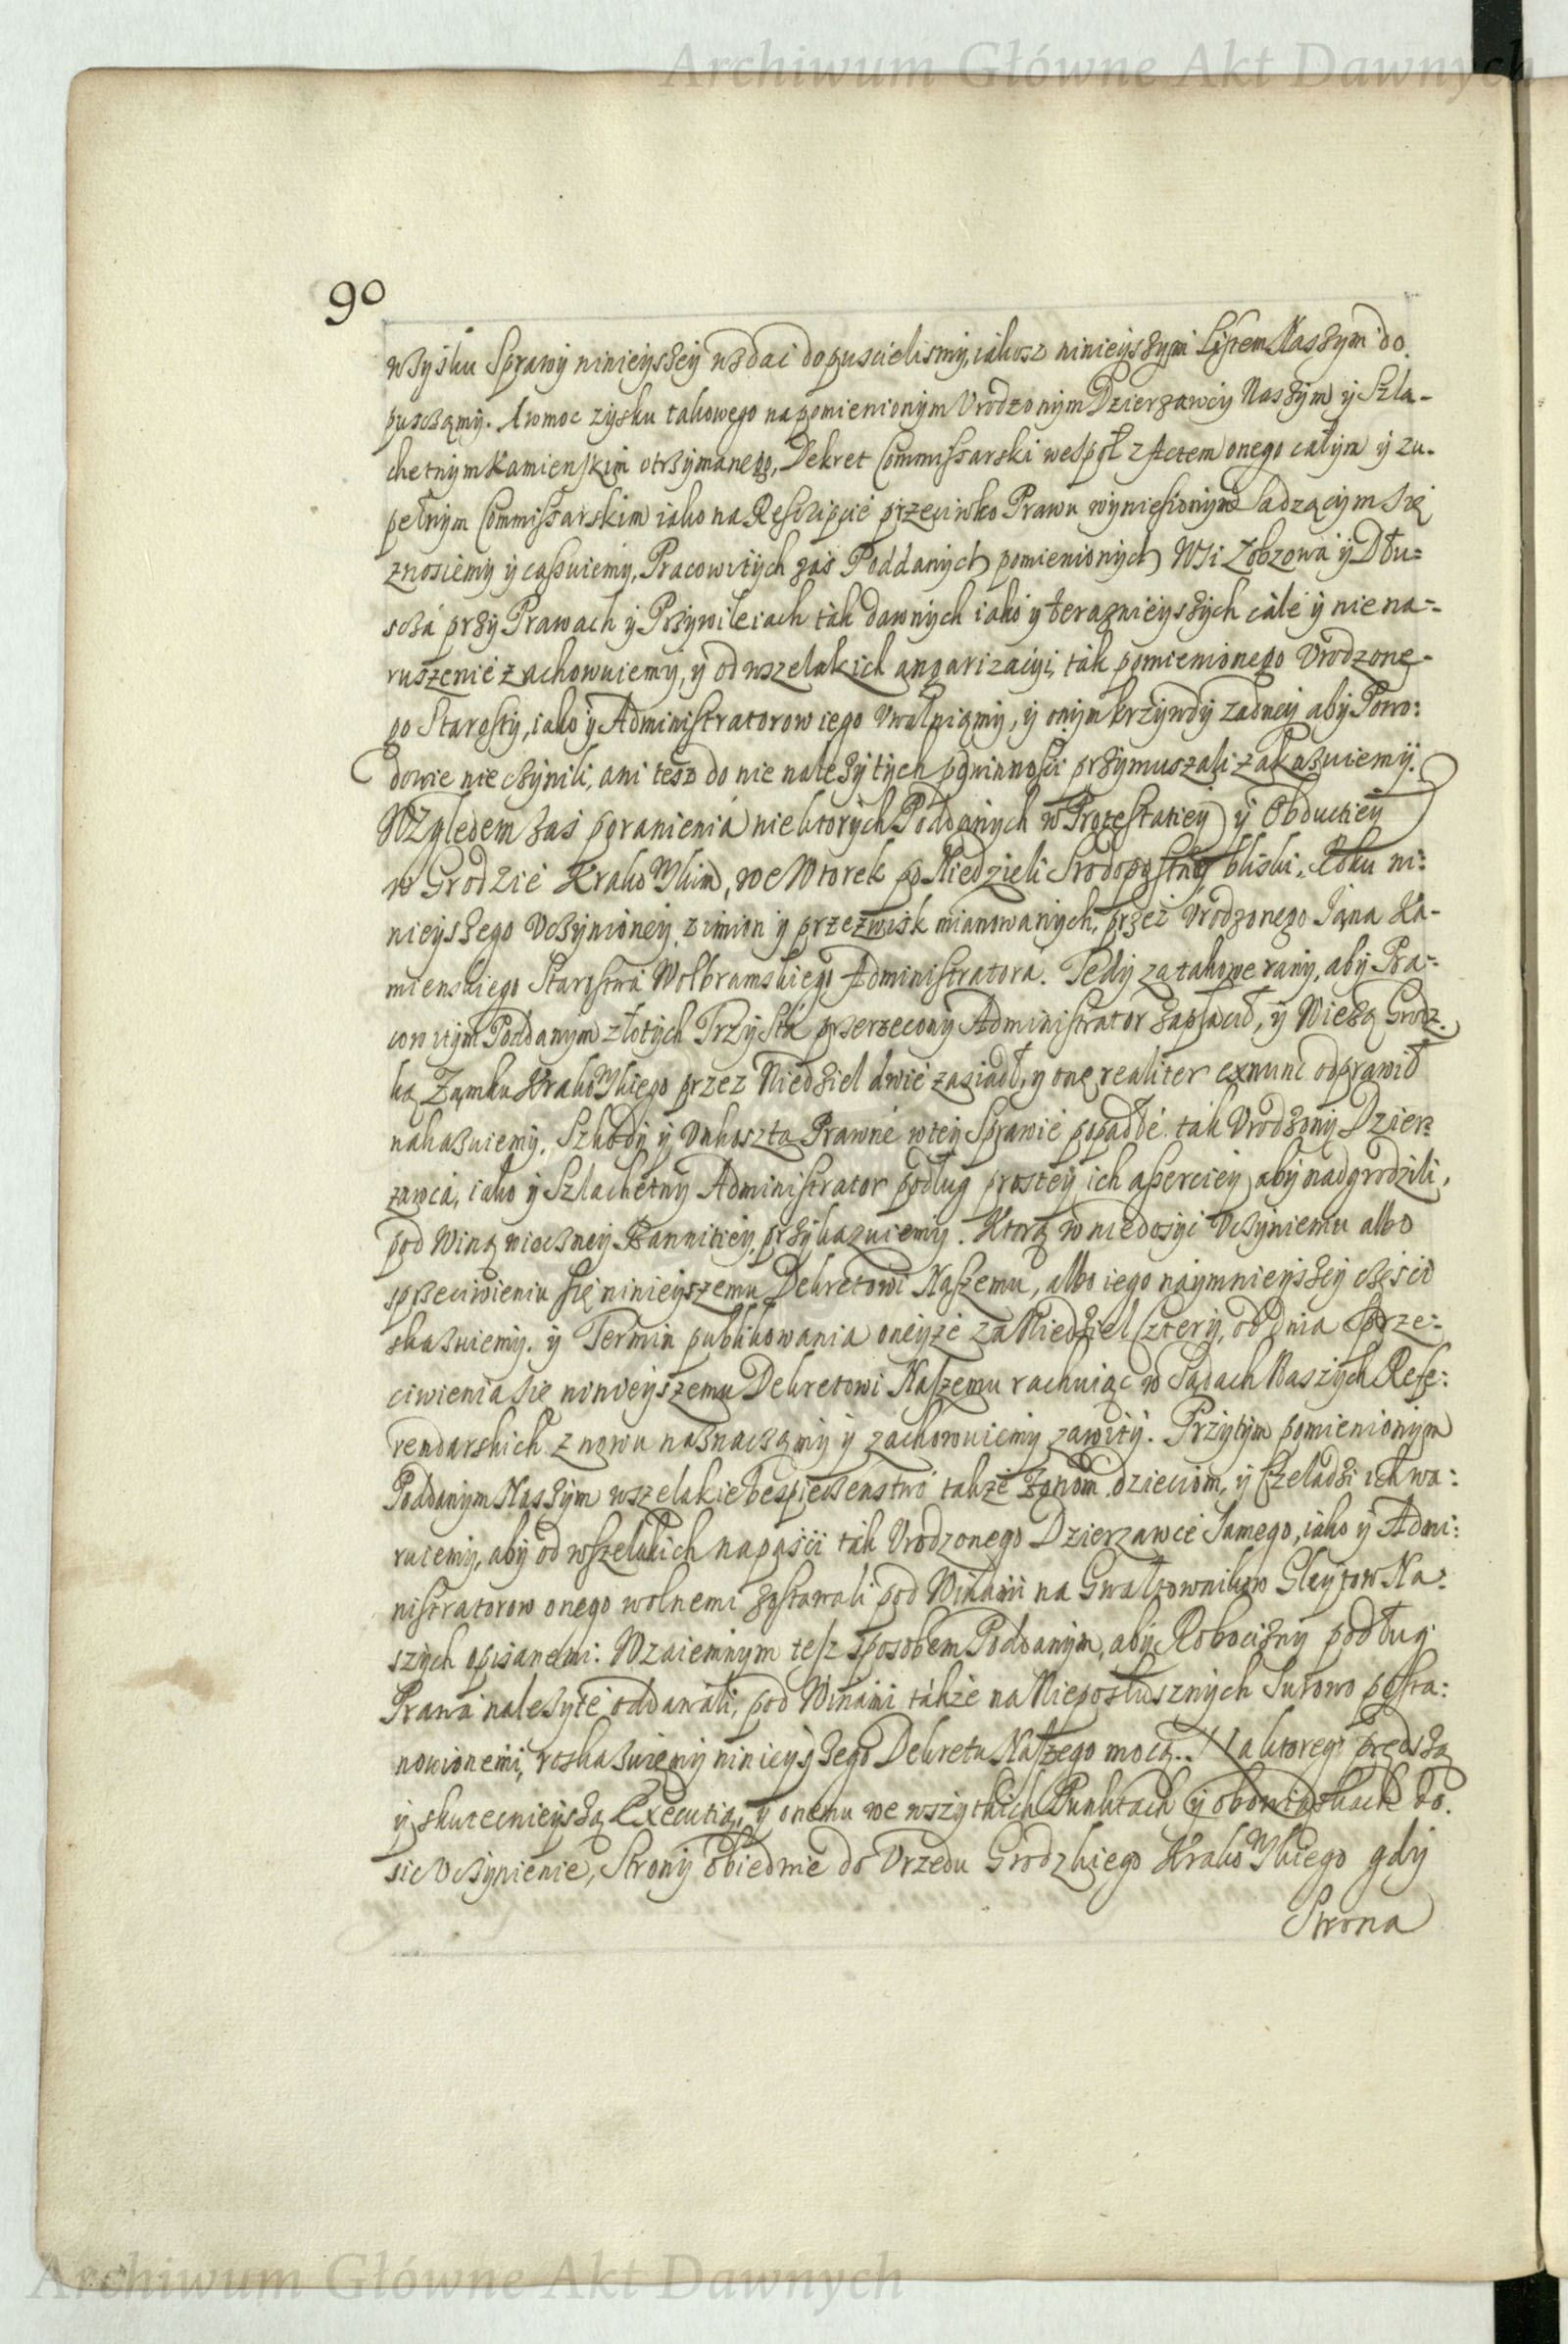 Archiwum Główne Akt Dawnych
90
w Zysku Sprawy ninieyszey wzdać dopuscielismy, iakosz ninieyszym Listem Naszym do.
puszczamy. A w moc zysku takowego na pomienionym Urodzonym Dzierzawcy Naszym y Szla-
chetnym Kamienskim otrzymanego, Dekret Commissarski wespoł z Actem onego całym y zu-
pełnym Commissarskim iako na Rescripcie przeciwko Prawu wyniesionym Sadzącym się
znosiemy y cassuiemy, Pracowitych zas Poddanych pomienionych Wsi Zobzowa y Dłu=
sczá przy Prawach y Przywileiach ták dawnych iako y teraznieyszych cále y niena=
ruszenie zachowuiemy, y od wszelakich angarizacyi, ták pomienionego Urodzone-
go Starosty, iako y Administratorow iego Uwalniamy, y onym krzywdy zadney aby Powo:
dowie nie czynili, ani tesz do nie należytych powinności przymuszali zakazuiemy.
Względem zas poranienia niektorych Poddanych w Protestatiey y Obductiey
w Grodzie Krakowskim, we Wtorek po Niedzieli Srodopostney bliski, Roku ni:
nieyszego Uczynioney, z imion y przezwisk mianowanych, przez Urodzonego Jana Ka-
mienskiego Starostwa Wolbramskiego Administratora. Tedy za takowe rany, aby Pra=
cowitym Poddanym złotych Trzysta przerzeczony Administrator zapłacił, y Wiezą Grodz.
ką Zamku Krakowskiego przez Niedziel dwie zasiadł, y onę realiter exnunc odprawił
nakazuiemy. Szkody y Unkoszta Prawne w tey Sprawie popadłe ták Urodzony Dzier=
zawca, iako y Szlachetny Administrator podług prostey ich asserciey aby nadgrodzili,
pod Winą wieczney Bannitiey, przykazuiemy. Ktorą w niedosyć Uczynieniu albo
sprzeciwieniu się ninieyszemu Dekretowi Naszemu, albo iego naymnieyszey części
skazuiemy. y Termin publikowania oneyże za Niedziel Cztery, od dnia Sprze:
ciwienia się ninieyszemu Dekretowi Naszemu rachuiąc w Sądach Naszych Refe:
rendarskich znowu naznaczamy y zachowuiemy zawity. Przytym pomienionym
Poddanym Naszym wszelakie bespieczenstwo takze żonom dzieciom, y Czeladzi ich wa:
ruiemy, aby od wszelakich napaści ták Urodzonego Dzierzawce Samego, iako y Admi:
nistratorow onego wolnemi zostawali pod Winami na Gwałtownikow Gleytow Na:
szych opisanemi. Wzaiemnym tesz sposobem Poddanym, aby Robocizny podług
Prawa należyte oddawali, pod Winami także na Nieposłusznych Surowo posta:
nowionemi, roskazuiemy ninieyszego Dekretu Naszego mocą. Na ktorego prędszą
y skutecznieyszą Executią, y onemu we wszytkich Punktach y obowiąskach do.
sić Uczynienie, Strony obiedwie do Urzedu Grodzkiego Krakowskiego gdy
Strona
Archiwum Główne Akt Dawnych